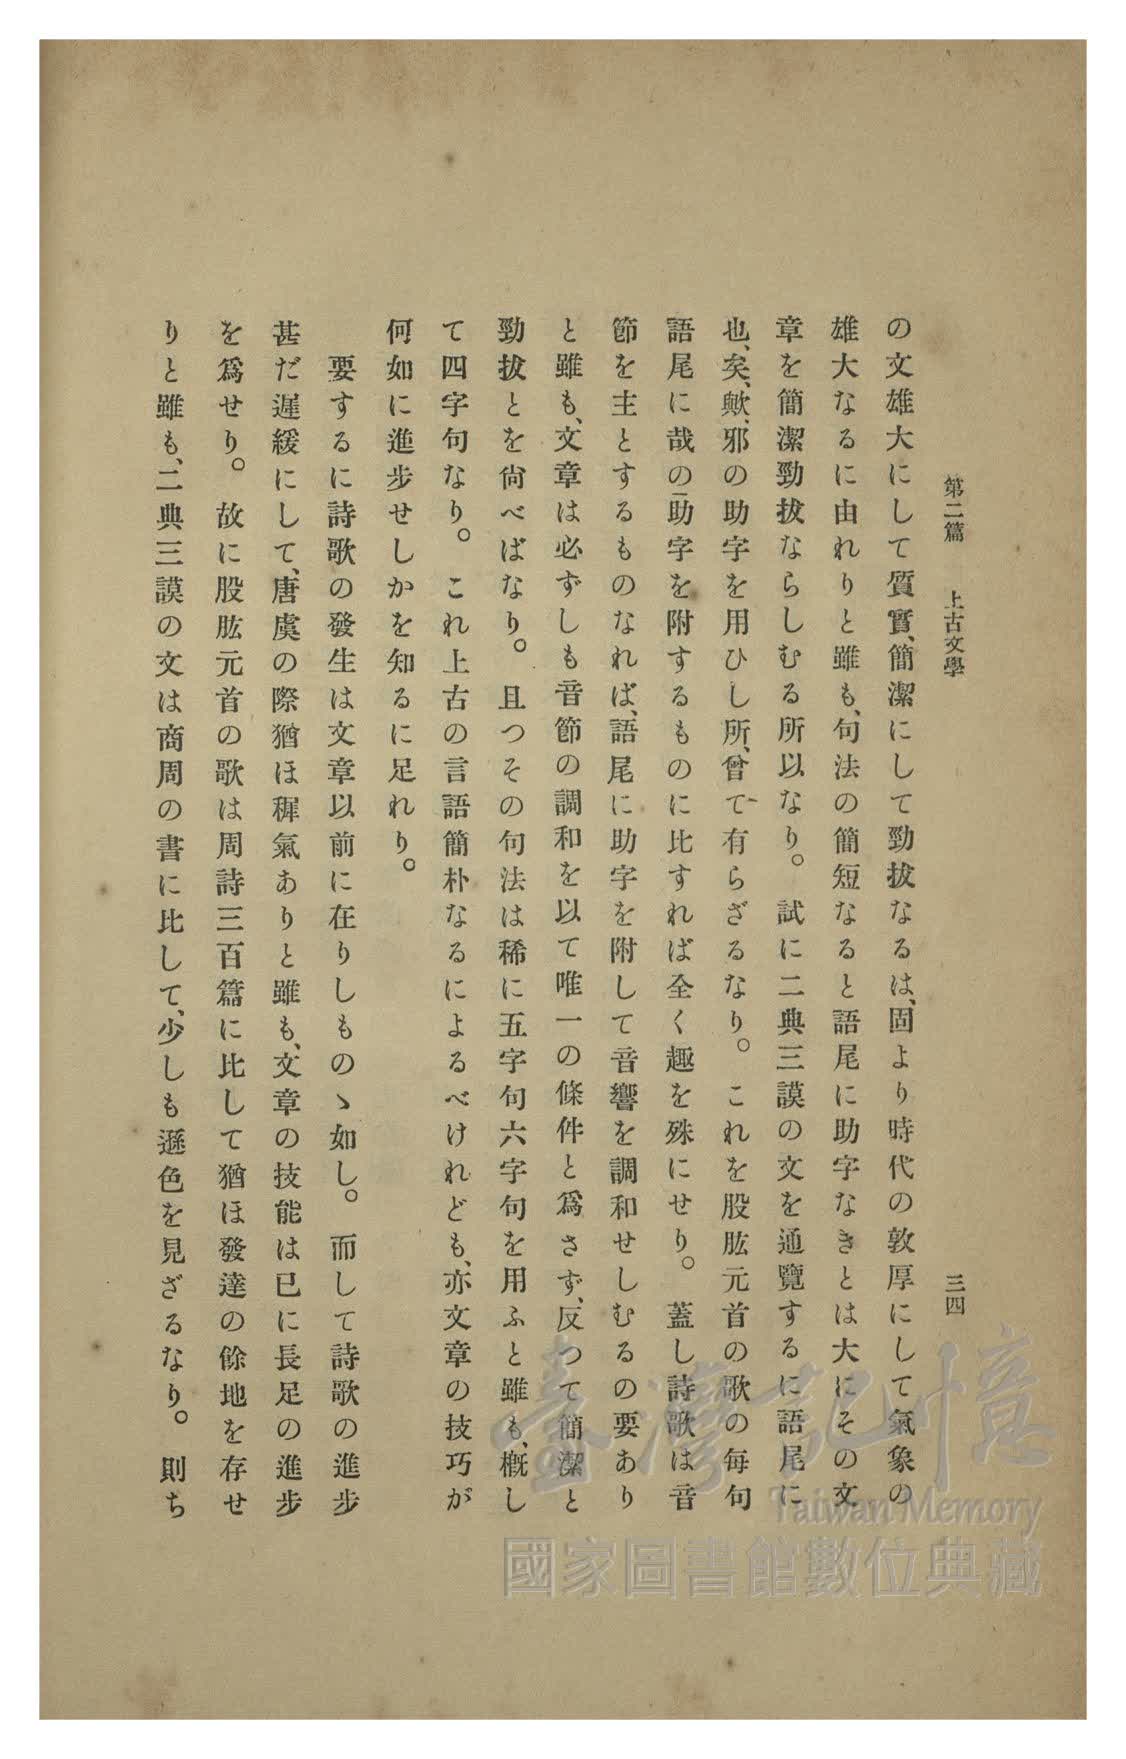 第二篇　上古文學　三四
の文雄大にして質實、簡潔にして勁拔なるは、固より時代の敦厚にして氣象の
雄大なるに由れりと雖も、句法の簡短なると語尾に助字なきとは大にその文
章を簡潔勁拔ならしむる所以なり。試に二典三謨の文を通覽するに語尾に
也、矣、歟、邪の助字を用ひし所、曾て有らざるなり。これを股肱元首の歌の每句
語尾に哉の助字を附するものに比すれば全く趣を殊にせり。蓋し詩歌は音
節を主とするものなれば、語尾に助字を附して音響を調和せしむるの要あり
と雖も、文章は必ずしも音節の調和を以て唯一の條件と爲さず、反つて簡潔と
勁拔とを尙べばなり。且つその句法は稀に五字句六字句を用ふと雖も、槪し
て四字句なり。これ上古の言語簡朴なるによるべけれども、亦文章の技巧が
何如に進步せしかを知るに足れり。
要するに詩歌の發生は文章以前に在りしものゝ如し。而して詩歌の進步
甚だ遲緩にして、唐虞の際猶ほ穉氣ありと雖も、文章の技能は已に長足の進步
を爲せり。故に股肱元首の歌は周詩三百篇に比して猶ほ發達の餘地を存せ
りと雖も、二典三謨の文は商周の書に比して、少しも遜色を見ざるなり。則ち
臺灣記憶
Taiwan Memory
國家圖書館數位典藏